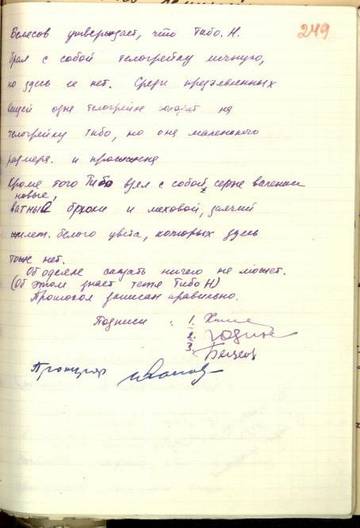 249
Белесов утверждает, что Тибо. Н.
брал с собой телогрейку личную,
но здесь ее нет. Среди предъявленных
вещей одна телогрейка походит на
телогрейку Тибо, но она маленького
размера. и
Кроме того Тибо взял с собой серые валенки
новые,
ватные брюки и меховой, заячий
жилет. белого цвета, которых здесь
тоже нет.
Об одеяле сказать ничего не может.
(Об этом знает тетя Тибо Н)
Протокол записан правильно.
Подписи : 1.
2.
3.
Прокурор